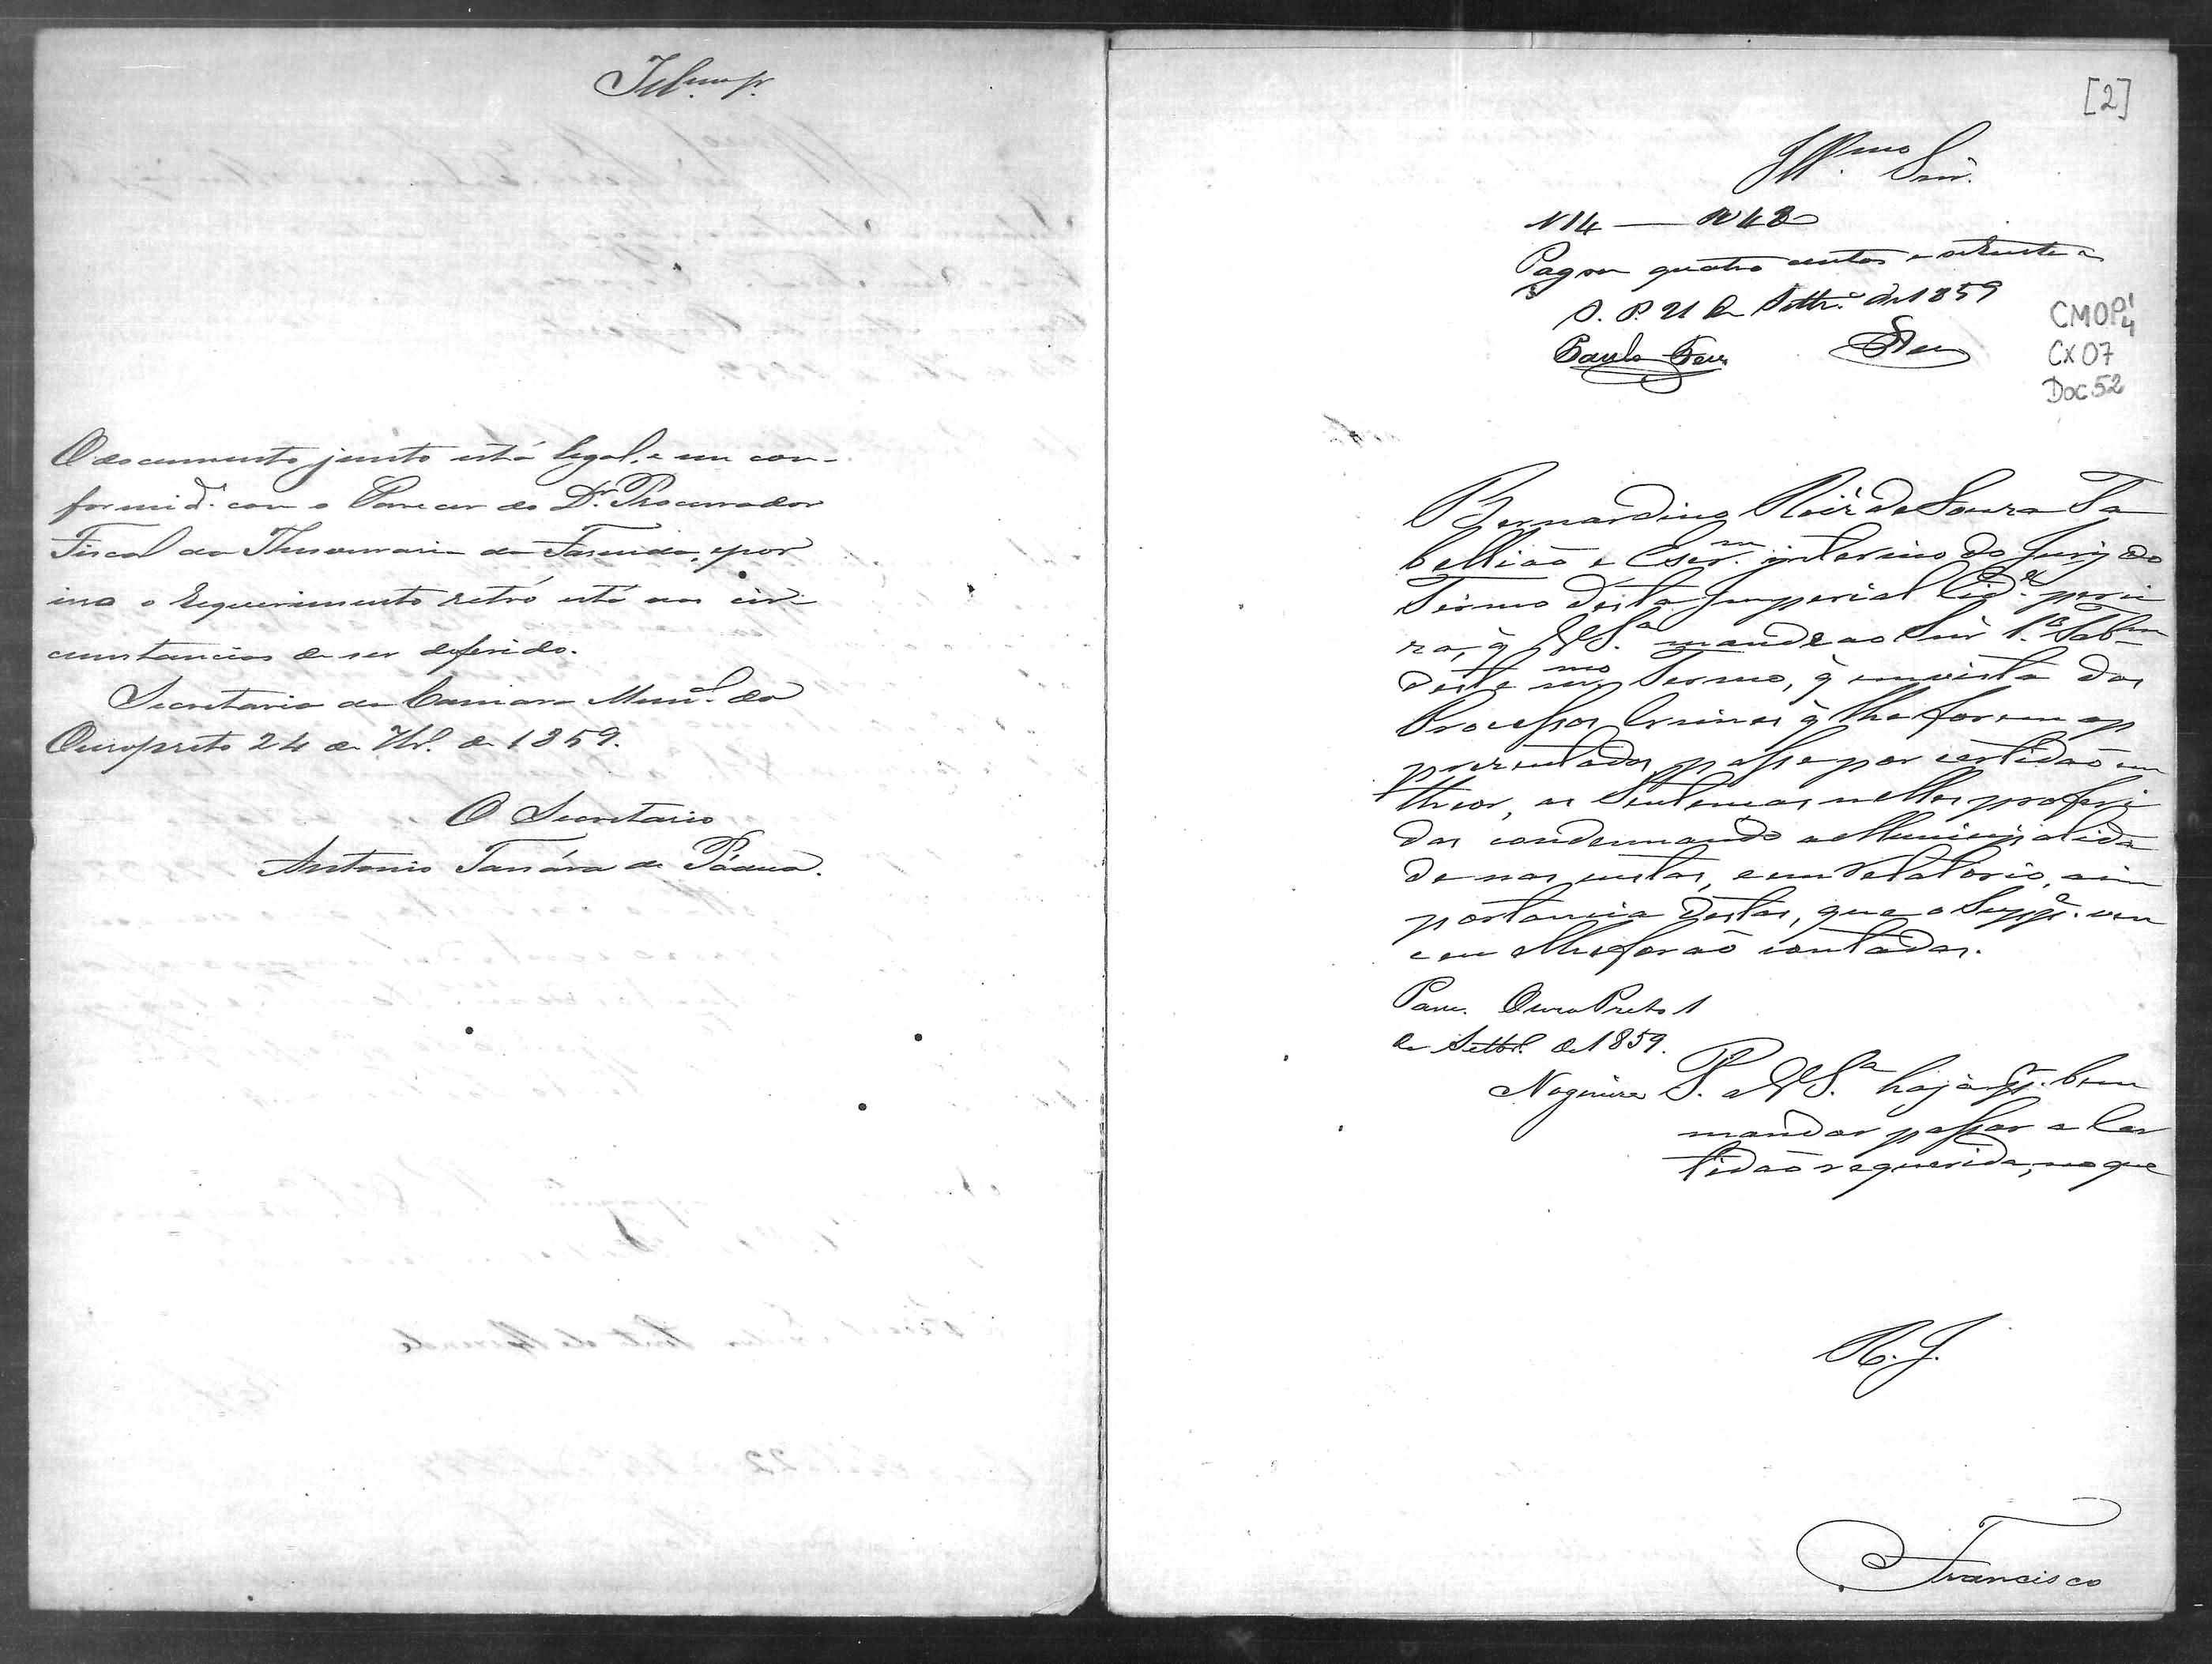 O documento junto está legal, e em con-
formid.e com o Parecer do Dr. Procurador
Fiscal da Thesouraria da Fasenda, e por
isso o Requerimento retró está nas cir-
cunstancias de ser deferido.
Secretaria da Camara Mun.al do
Ouropreto 24 de 9br.o de 1859.
O Secretario
Antonio de Pádua.
[2]
Ill.mo Snr.
N 14 —
Pagou quatro centos e setenta
O. P. 21 de Settr.o de 1859
CMOP 1/4
CX 07
Doc 52
Bernardino Roiz de Souza Ta
bellião e Escr.am interino do Jury do
Termo desta Imperial Cid.e preci
za, q̃ V S.a mande ao Snr 1.o Tab.am
deste m.mo Termo, q̃ em vista dos
Processos Crimes q̃ lhe forem ap
prezentados, passe por certidão em
theor, as Sentenças nelles proferi
das condemnando a Municipalida
de nas custas, e em relatorio, a im
portancia destas, que o Supp.e ven
ceu e lhe forão contadas.
Passe. Ouro Preto 1
de Settbr.o de 1859.
Nogueira
P. a V S.a haja p.r bem
mandar passar a Cer
tidão requerida, no que
R. J.
Francisco